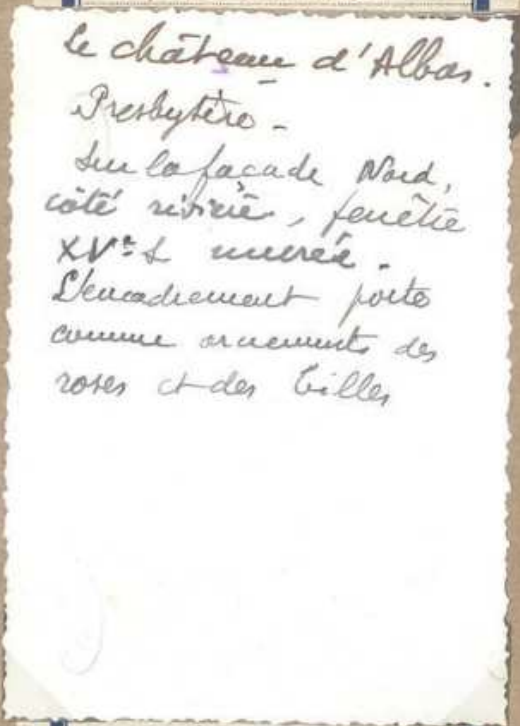 Le château d'Albas.
Presbytère -
Sur la façade Nord,
côté rivière, fenêtre
XVe S murée.
L'encadrement porte
comme ornements des
roses et des billes